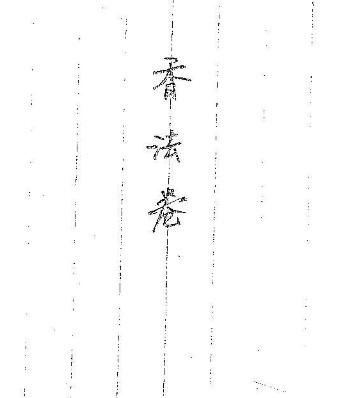 看法卷